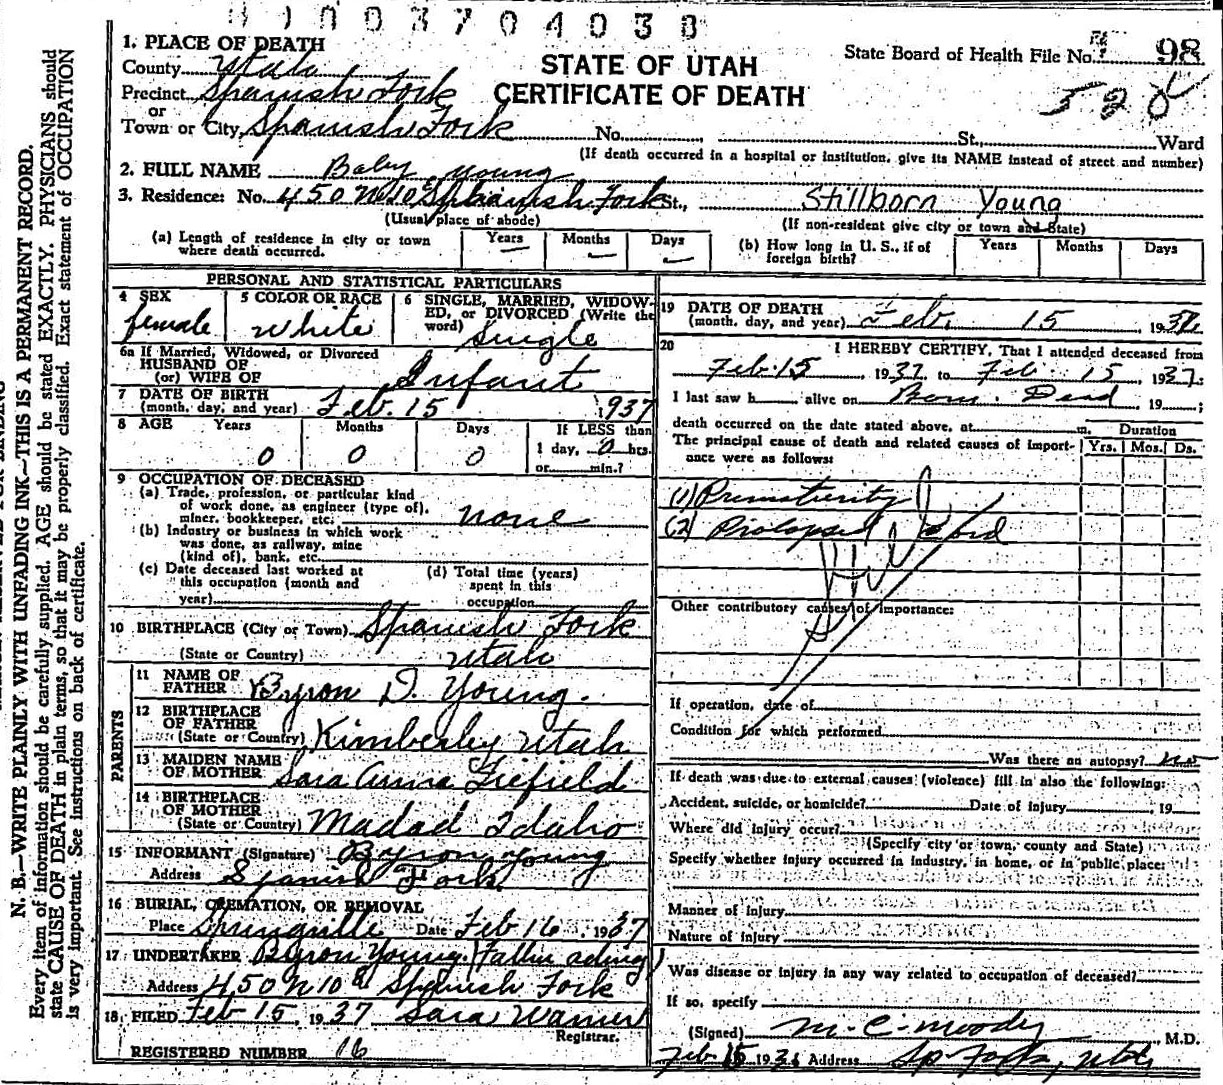 1. PLACE OF DEATH
County Utah
Precinct Spanish Fork
or
Town or City, Spanish Fork No. St., Ward
STATE OF UTAH
CERTIFICATE OF DEATH
State Board of Health File No. 98
528
(If death occurred in a hospital or institution, give its NAME instead of street and number)
2. FULL NAME Baby Young
3. Residence: No. 450 N 10 E Spanish Fork St., Stillborn Young
(Usual place of abode)
(If non-resident give city or town and State)
(a) Length of residence in city or town where death occurred. Years — Months — Days —
(b) How long in U. S., if of foreign birth? Years Months Days
PERSONAL AND STATISTICAL PARTICULARS
4 SEX female
5 COLOR OR RACE White
6 SINGLE, MARRIED, WIDOWED, or DIVORCED (Write the word) Single
6a If Married, Widowed, or Divorced
HUSBAND OF
(or) WIFE OF Infant
7 DATE OF BIRTH
(month, day, and year) Feb. 15 1937
8 AGE Years 0 Months 0 Days 0 If LESS than 1 day, 0 hrs. or min.?
9 OCCUPATION OF DECEASED
(a) Trade, profession, or particular kind of work done, as engineer (type of), miner, bookkeeper, etc. none
(b) Industry or business in which work was done, as railway, mine (kind of), bank, etc.
(c) Date deceased last worked at this occupation (month and year)
(d) Total time (years) spent in this occupation
10 BIRTHPLACE (City or Town) Spanish Fork
(State or Country) Utah
PARENTS
11 NAME OF FATHER Byron D. Young.
12 BIRTHPLACE OF FATHER
(State or Country) Kimberley Utah
13 MAIDEN NAME OF MOTHER Sara Anna Fiefield
14 BIRTHPLACE OF MOTHER
(State or Country) Madad Idaho
15 INFORMANT (Signature) Byron Young
Address Spanish Fork
16 BURIAL, CREMATION, OR REMOVAL
Place Springville Date Feb 16, 1937
17 UNDERTAKER Byron Young
Address 450 N 10 E Spanish Fork
18 FILED Feb 15, 1937 Sara Warner
Registrar.
REGISTERED NUMBER 16
19 DATE OF DEATH
(month, day, and year) Feb. 15, 1937
20 I HEREBY CERTIFY, That I attended deceased from
Feb. 15, 1937, to Feb 15, 1937.
I last saw h alive on Born Dead, 19 ;
death occurred on the date stated above, at m. Duration
The principal cause of death and related causes of importance were as follows: Yrs. Mos. Ds.
(1) Prematurity
(2) Prolapsed Cord
Other contributory causes of importance:
If operation, date of
Condition for which performed
Was there an autopsy? no
If death was due to external causes (violence) fill in also the following:
Accident, suicide, or homicide? Date of injury 19
Where did injury occur?
(Specify city or town, county and State)
Specify whether injury occurred in industry, in home, or in public place:
Manner of injury
Nature of injury
Was disease or injury in any way related to occupation of deceased?
If so, specify
(Signed) M. C. Moody, M.D.
Feb 15 193 Address Sp. Fork, Utah
N. B.—WRITE PLAINLY WITH UNFADING INK—THIS IS A PERMANENT RECORD.
Every item of information should be carefully supplied. AGE should be stated EXACTLY. PHYSICIANS should
state CAUSE OF DEATH in plain terms, so that it may be properly classified. Exact statement of OCCUPATION
is very important. See instructions on back of certificate.